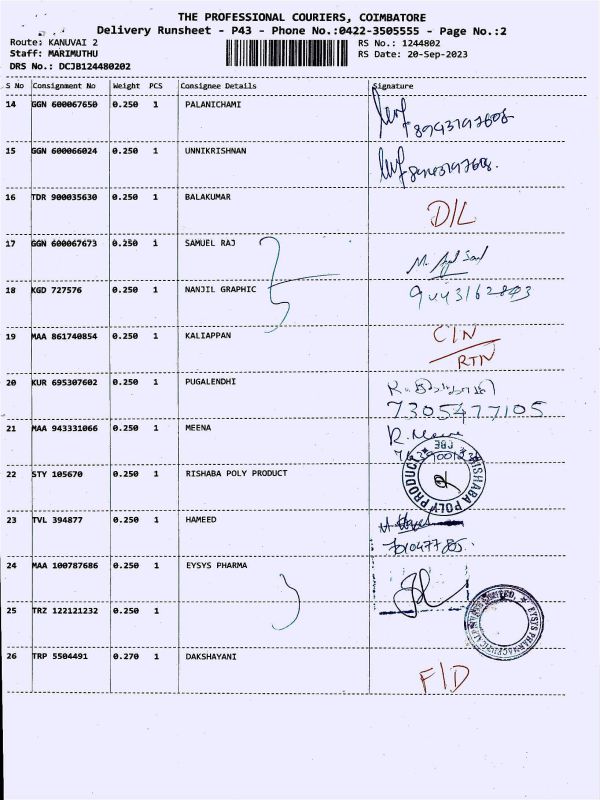 THE PROFESSIONAL COURIERS, COIMBATORE
Delivery Runsheet - P43 - Phone No.:0422-3505555 - Page No.:2
Route: KANUVAI 2 RS No.: 1244802
Staff: MARIMUTHU RS Date: 20-Sep-2023
DRS No.: DCJB124480202
S No Consignment No Weight PCS Consignee Details Signature
14 GGN 600067650 0.250 1 PALANICHAMI
8943197608
15 GGN 600066024 0.250 1 UNNIKRISHNAN
16 TDR 900035630 0.250 1 BALAKUMAR D/L
17 GGN 600067673 0.250 1 SAMUEL RAJ
18 KGD 727576 0.250 1 NANJIL GRAPHIC
19 MAA 861740854 0.250 1 KALIAPPAN C/N
RTN
20 KUR 695307602 0.250 1 PUGALENDHI
7305477105
21 MAA 943331066 0.250 1 MEENA R. Meena
22 STY 105670 0.250 1 RISHABA POLY PRODUCT
RISHABA POLY PRODUCT
23 TVL 394877 0.250 1 HAMEED
24 MAA 100787686 0.250 1 EYSYS PHARMA
25 TRZ 122121232 0.250 1
EYSYS PHARMACEUTICAL PRIVATE LIMITED
26 TRP 5504491 0.270 1 DAKSHAYANI F/D